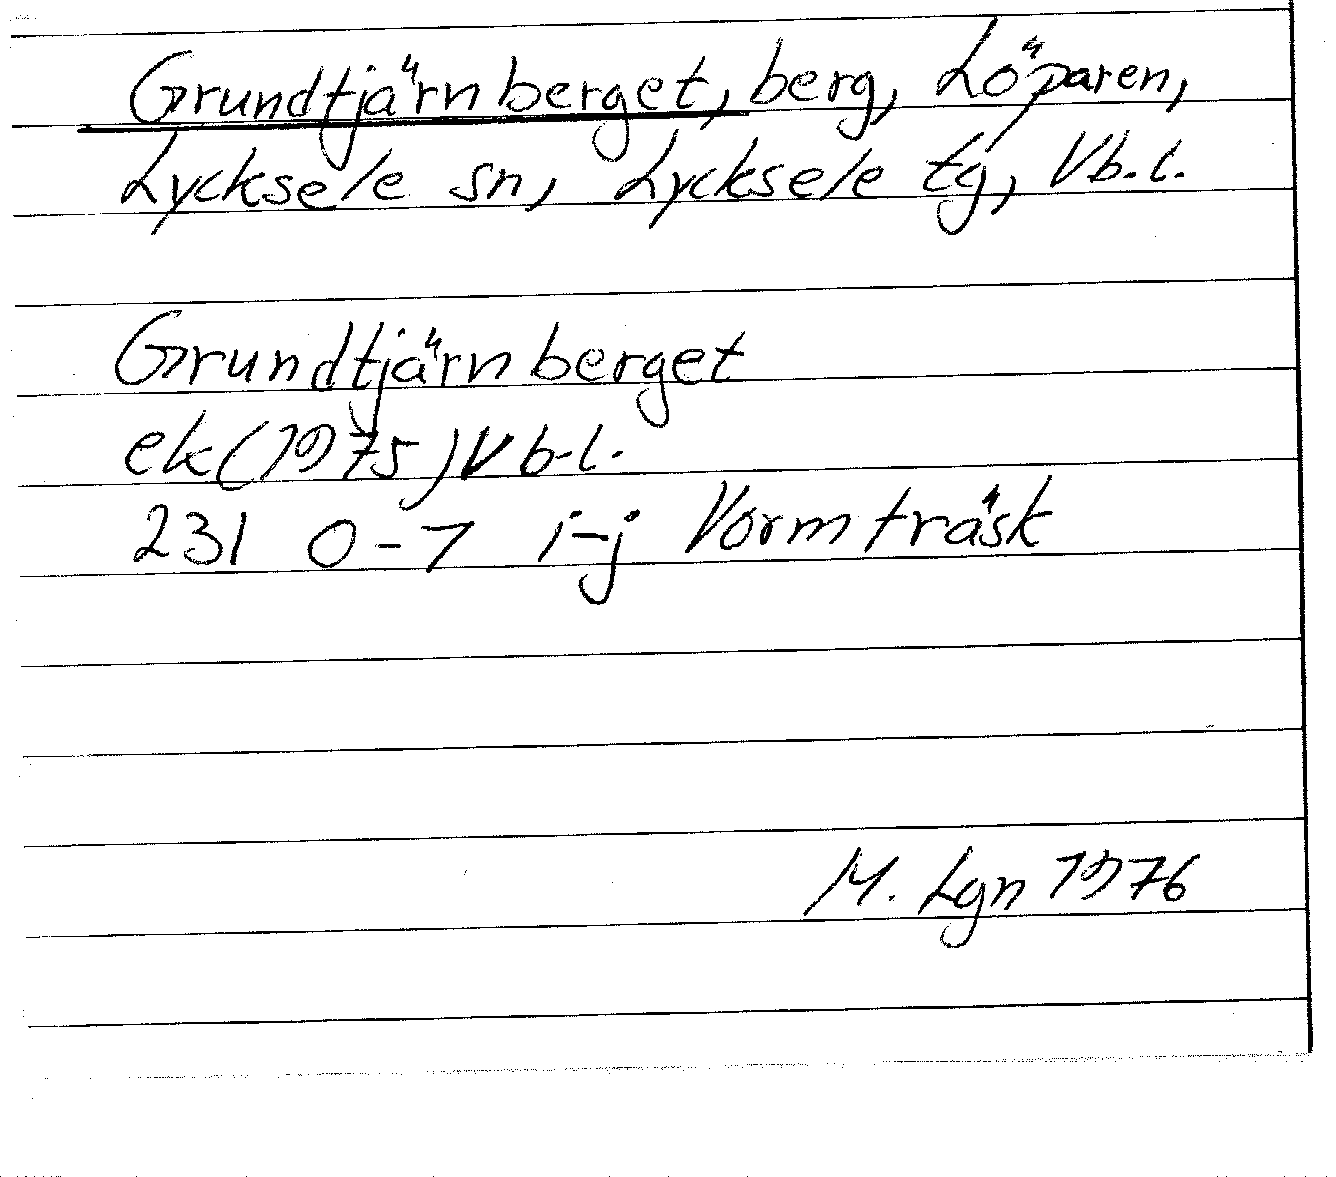 Grundtjärnberget, berg, Löparen,
Lycksele sn, Lycksele tg, Vb.l.
Grundtjärnberget
ek(1975)Vb-l.
231 0-7 i-j Vormträsk
M. Lgn 1976